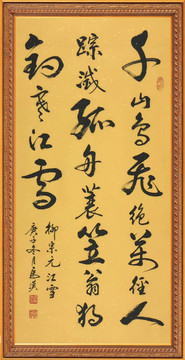 千山鸟飛绝萬徑人
踪滅孤舟蓑笠翁独
钓寒江雪
柳宗元江雪
庚子冬月